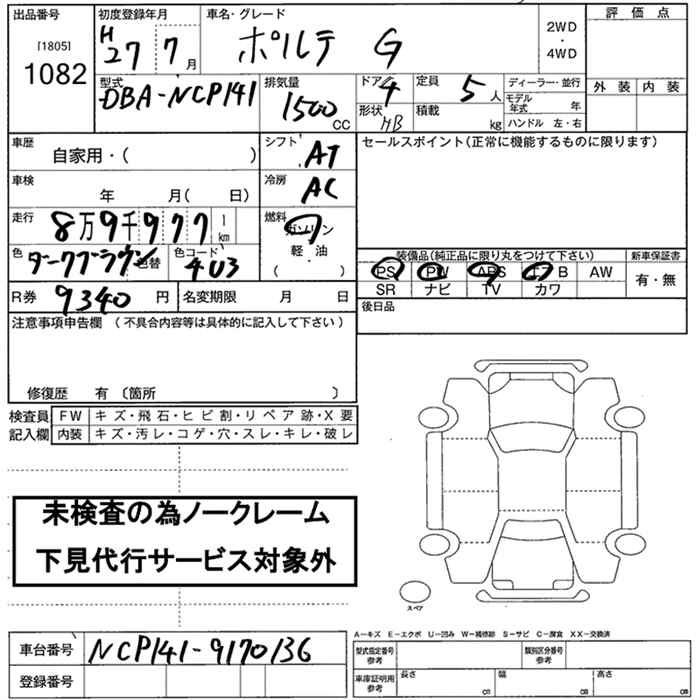 出品番号 初度登録年月 車名・グレード 評価点
[1805] H 27 7月 ポルテ G 2WD・4WD
1082
外装 内装
型式 排気量 ドア 定員 ディーラー・並行
DBA-NCP141 1500 CC 4 5人 モデル年式 年
形状 HB 積載 kg ハンドル 左・右
車歴 シフト セールスポイント(正常に機能するものに限ります)
自家用・( ) AT
車検 冷房
年 月( 日) AC
走行 8万9千977 1 km 燃料 ガソリン
色 ダークブラウン 色替 色コード 4U3 軽油 ( )
装備品(純正品に限り丸をつけて下さい) 新車保証書
PS PW ABS エアB AW 有・無
SR ナビ TV カワ
R券 9340円 名変期限 月 日 後日品
注意事項申告欄 (不具合内容等は具体的に記入して下さい)
修復歴 有 〔箇所 〕
検査員 FW キズ・飛石・ヒビ割・リペア跡・X要
記入欄 内装 キズ・汚レ・コゲ・穴・スレ・キレ・破レ
未検査の為ノークレーム
下見代行サービス対象外
スペア
A-キズ E-エクボ U-凹み W-補修跡 S-サビ C-腐食 XX-交換済
車台番号 NCP141-9170136 型式指定番号 参考 類別区分番号 参考
登録番号 車庫証明用 参考 長さ cm 幅 cm 高さ cm